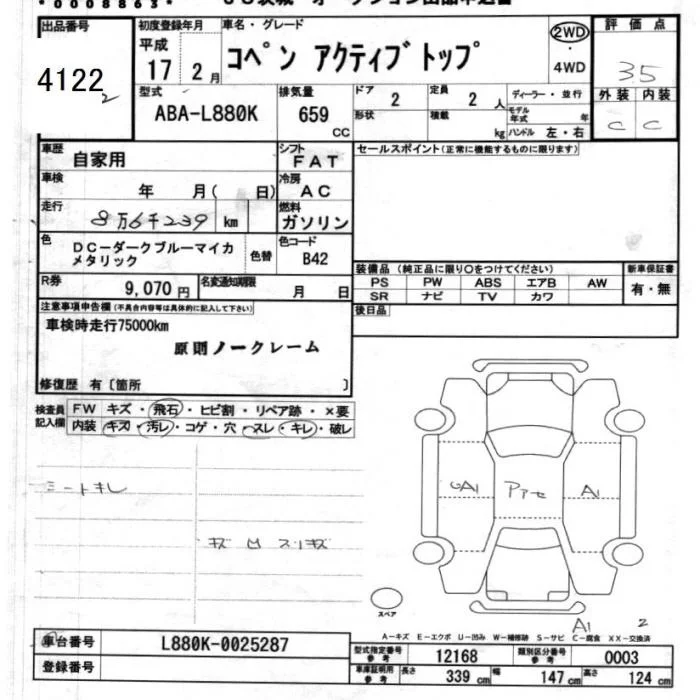 *0008863*
出品番号
4122
2
初度登録年月
平成
17 2月
車名・グレード
コペン アクティブトップ
2WD
・
4WD
評価点
3.5
外装 内装
C C
型式
ABA-L880K
排気量
659
CC
ドア
2
定員
2 人
形状
積載
kg
ディーラー・並行
モデル年式 年
ハンドル 左・右
車歴
自家用
シフト
FAT
車検
年 月( 日)
冷房
AC
走行
8万6千239 km
燃料
ガソリン
色
DC-ダークブルーマイカメタリック
色替
色コード
B42
R券
9,070 円
名変通知期限
月 日
セールスポイント(正常に機能するものに限ります)
装備品 (純正品に限り○をつけてください)
新車保証書
PS PW ABS エアB AW
有・無
SR ナビ TV カワ
後日品
注意事項申告欄(不具合内容等は具体的に記入して下さい)
車検時走行75000km
原則ノークレーム
修復歴 有〔箇所 〕
検査員
記入欄
FW キズ・飛石・ヒビ割・リペア跡・×要
内装 キズ・汚レ・コゲ・穴・スレ・キレ・破レ
シートキレ
キズ 凹 スリキズ
A1
A1
スペア
A1
2
A-キズ E-エクボ U-凹み W-補修跡 S-サビ C-腐食 XX-交換済
車台番号
L880K-0025287
登録番号
型式指定番号
参考
12168
類別区分番号
参考
0003
車庫証明用
参考
長さ
339 cm
幅
147 cm
高さ
124 cm